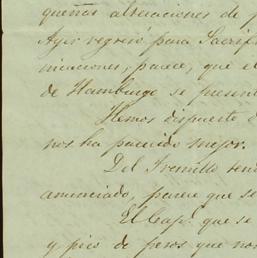 queñas alteraciones de p
Ayer regresó para Sacrif
nicaciones, parece, que el
de Hamburgo se presen
Hemos dispuesto
nos ha parecido mejor.
Del Tremillo ten
anunciado, parece que se
El Capn. que se
y pico de pesos que nos